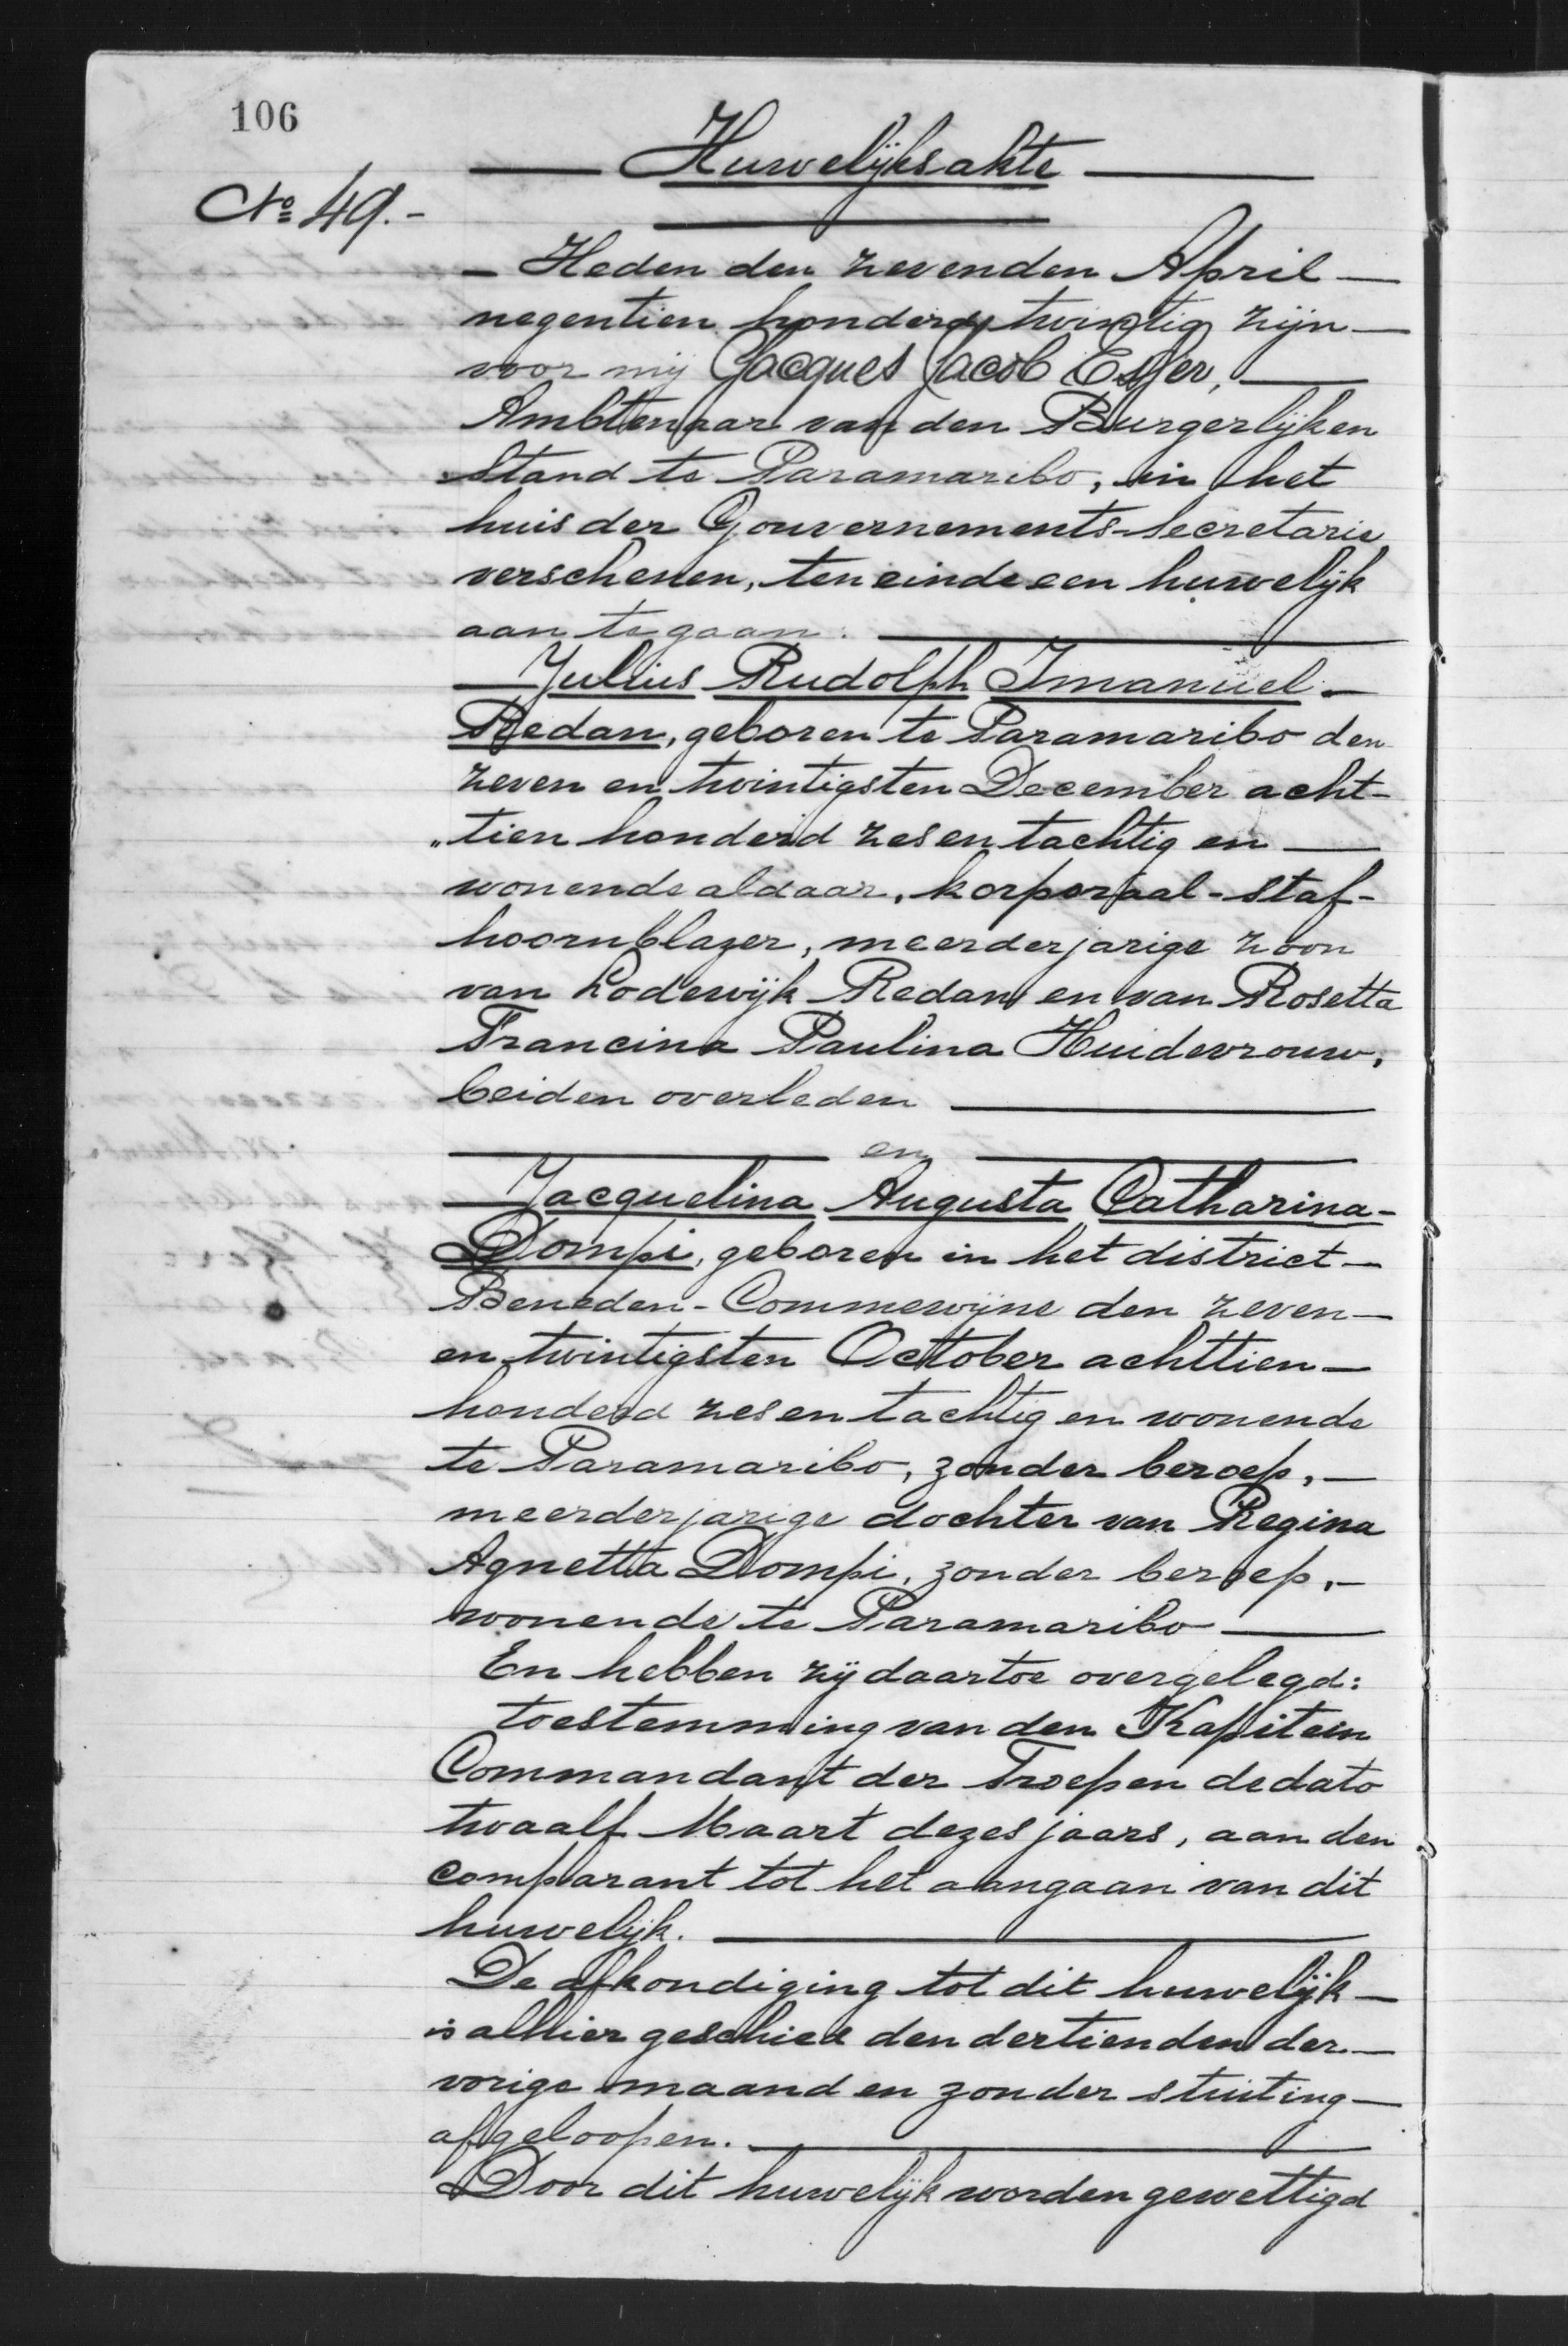 106
Huwelijksakte
No 49.-
Heden den zevenden April
negentien honderd twintig zijn
voor mij Jacques Jacob Esser,
Ambtenaar van den Burgerlijken
stand te Paramaribo, in het
huis der Gouvernements-secretarie
verschenen, ten einde een huwelijk
aan te gaan:
Julius Rudolph Imanuel
Redan, geboren te Paramaribo den
zeven en twintigsten December acht-
„tien honderd zes en tachtig en
wonende aldaar, korporaal-staf-
hoornblazer, meerderjarige zoon
van Lodewijk Redan en van Rosetta
Francina Paulina Huidevrouw,
beiden overleden
en
Jacquelina Augusta Catharina
Dompi, geboren in het district
Beneden-Commewijne den zeven
en twintigsten October achttien
honderd zes en tachtig en wonende
te Paramaribo, zonder beroep,
meerderjarige dochter van Regina
Agnetta Dompi, zonder beroep,
wonende te Paramaribo
En hebben zij daartoe overgelegd:
toestemming van den Kapitein
Commandant der Troepen de dato
twaalf Maart dezes jaars, aan den
comparant tot het aangaan van dit
huwelijk.
De afkondiging tot dit huwelijk
is alhier geschied den dertienden der
vorige maand en zonder stuiting
afgeloopen.
Door dit huwelijk worden gewettigd